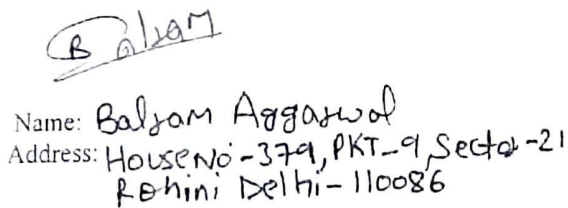 Balram
Name: Balram Aggarwal
Address: House No - 379, PKT-9, Sector-21
Rohini Delhi - 110086